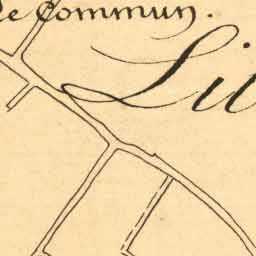 de Commun.
Li